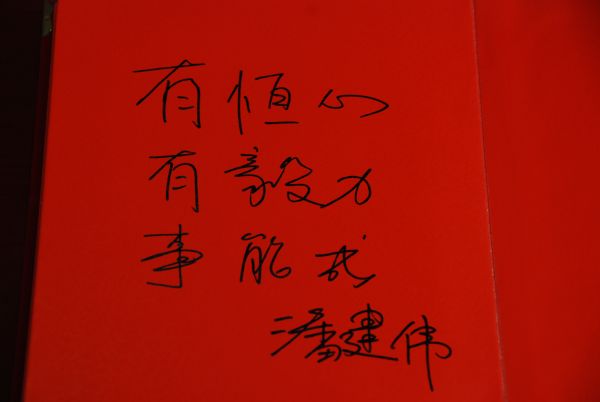 有恒心
有毅力
事能成
潘建伟